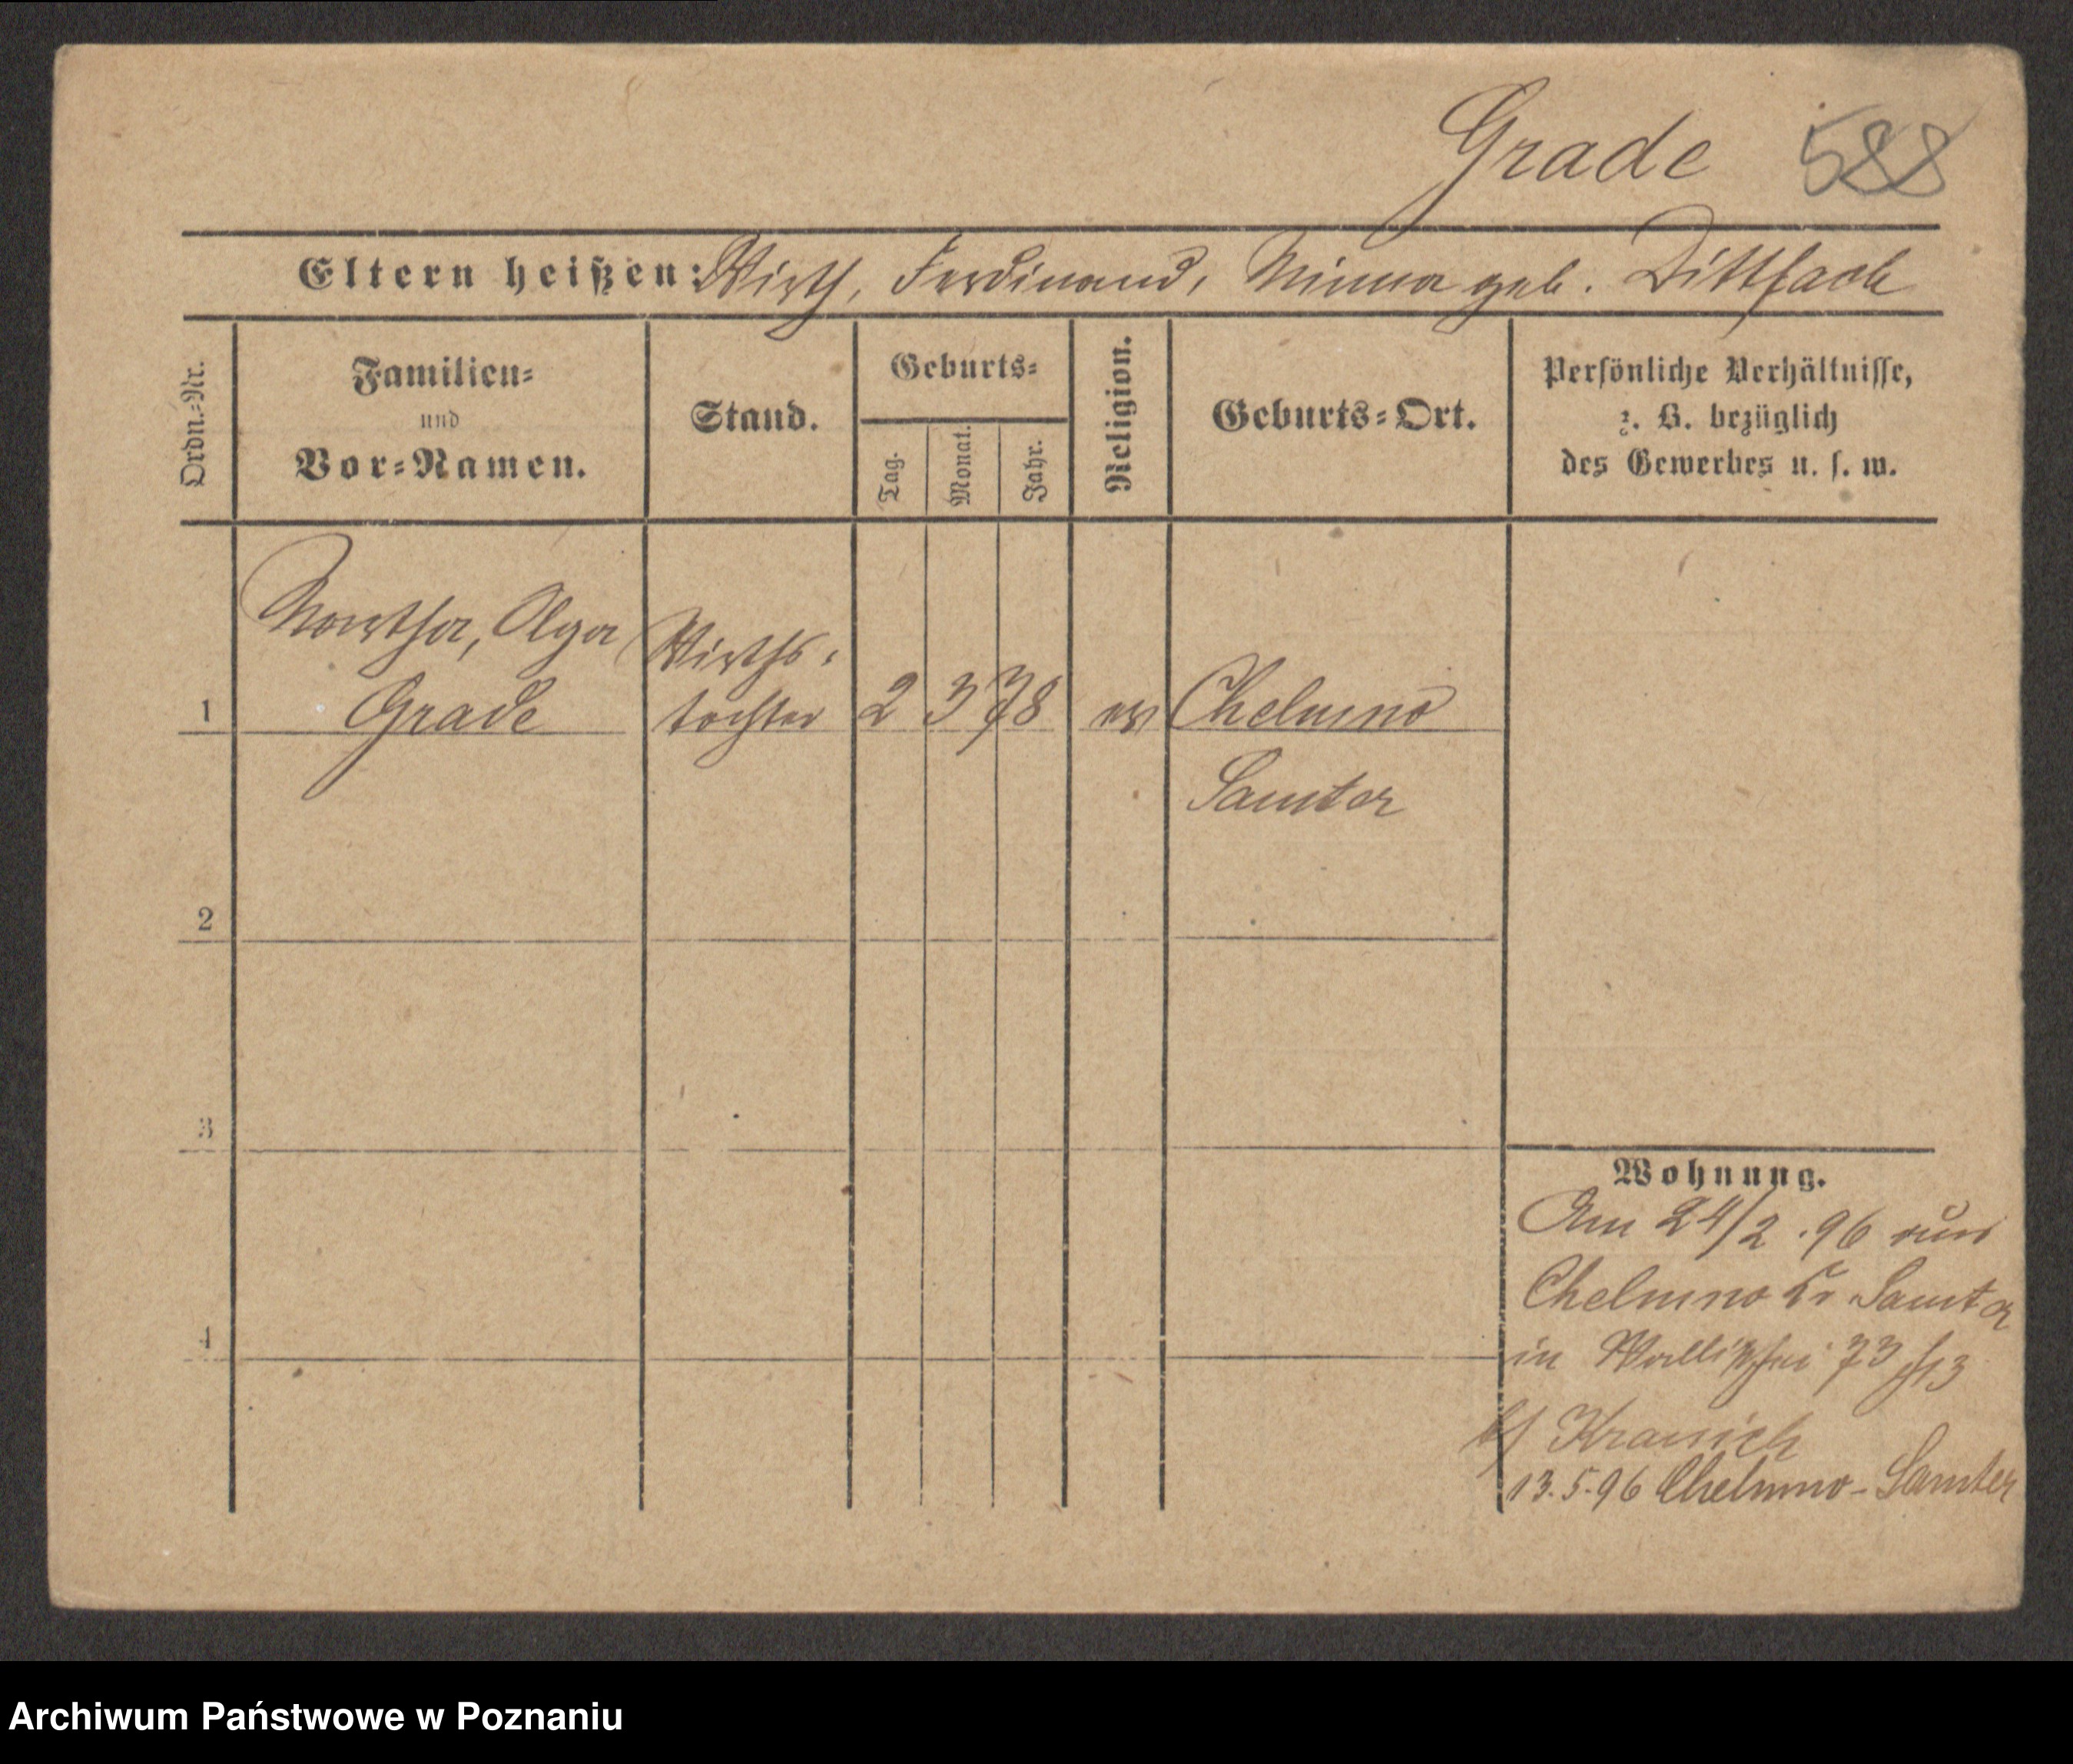 Grade 588
Eltern heißen: Wirth, Ferdinand, Minna geb. Dittfach
Ordn.-Nr.
Familien-
und
Vor-Namen.
Stand.
Geburts-
Tag.
Monat.
Jahr.
Religion.
Geburts-Ort.
Persönliche Verhältnisse,
z. B. bezüglich
des Gewerbes u. s. w.
Martha, Olga
Grade
Wirths-
tochter
1
2 3 78 ev Chelmno
Samter
2
3
4
Wohnung.
Am 24/2.96 aus
Chelmno Kr Samter
in 73
b/ Kranich
13.5.96 Chelmno - Samter
Archiwum Państwowe w Poznaniu